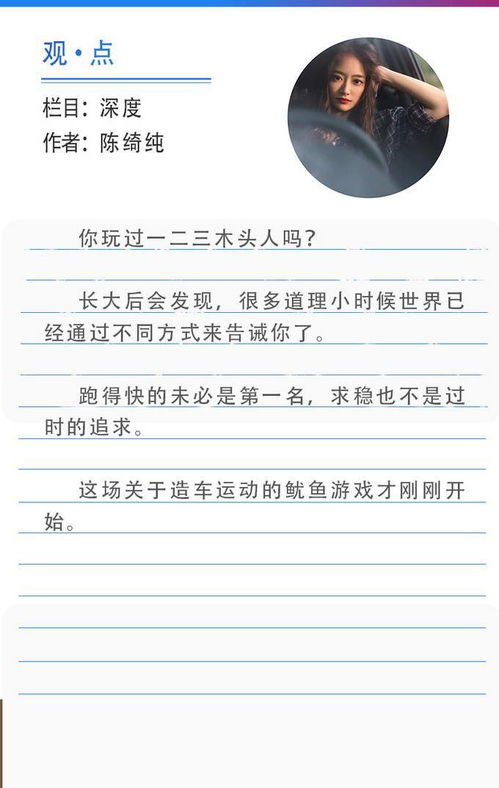 观·点
栏目：深度
作者：陈绮纯
你玩过一二三木头人吗？
长大后会发现，很多道理小时候世界已
经通过不同方式来告诫你了。
跑得快的未必是第一名，求稳也不是过
时的追求。
这场关于造车运动的鱿鱼游戏才刚刚开
始。